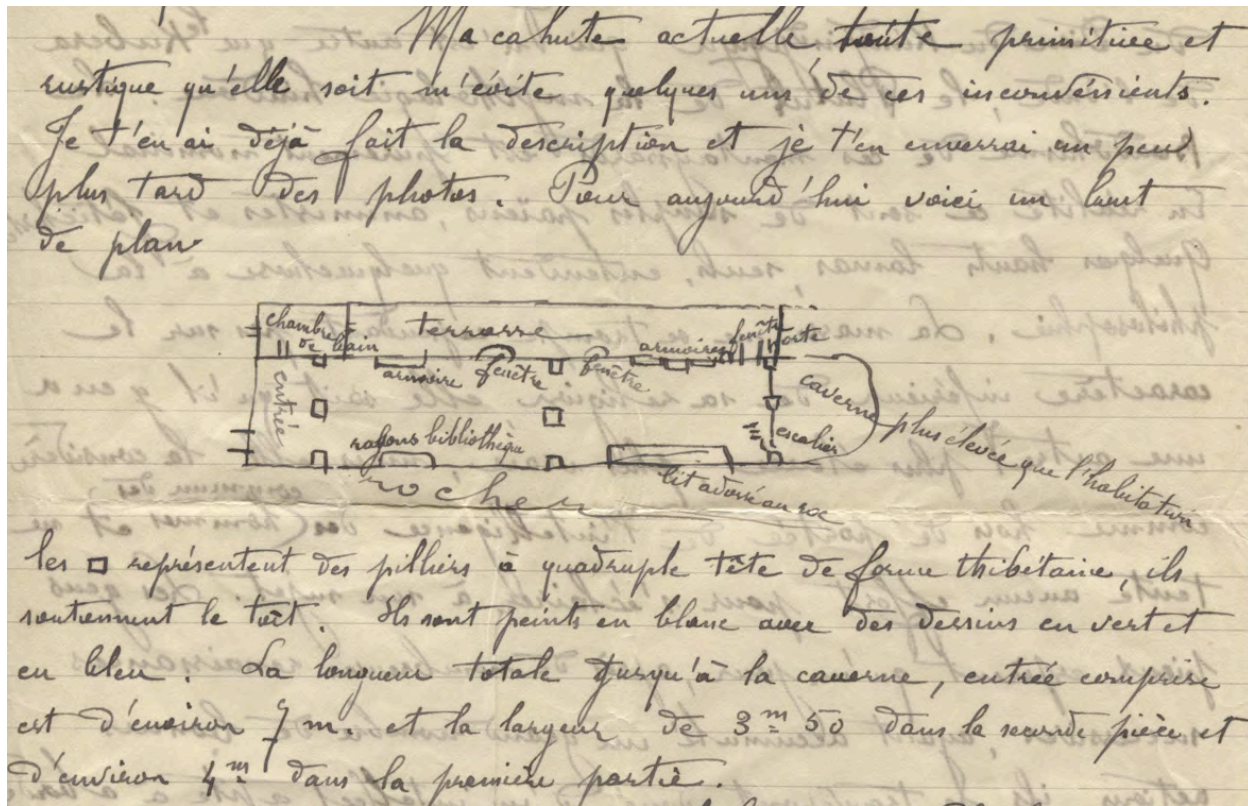 Ma cahute actuelle toute primitive et
rustique qu'elle soit m'évite quelques uns de ces inconvénients.
Je t'en ai déjà fait la description et je t'en enverrai un peu
plus tard des photos. Pour aujourd'hui voici un bout
de plan
chambre de bain
terrasse
armoires
fenêtre
porte
armoire
fenêtre
fenêtre
entrée
caverne plus élevée que l'habitation
escalier
rayons bibliothèque
lit adossé au roc
rocher
les □ représentent des pilliers à quadruple tête de forme thibétaine, ils
soutiennent le toit. Ils sont peints en blanc avec des dessins en vert et
en bleu. La longueur totale jusqu'à la caverne, entrée comprise
est d'environ 7 m. et la largeur de 3m 50 dans la seconde pièce et
d'environ 4m dans la première partie.